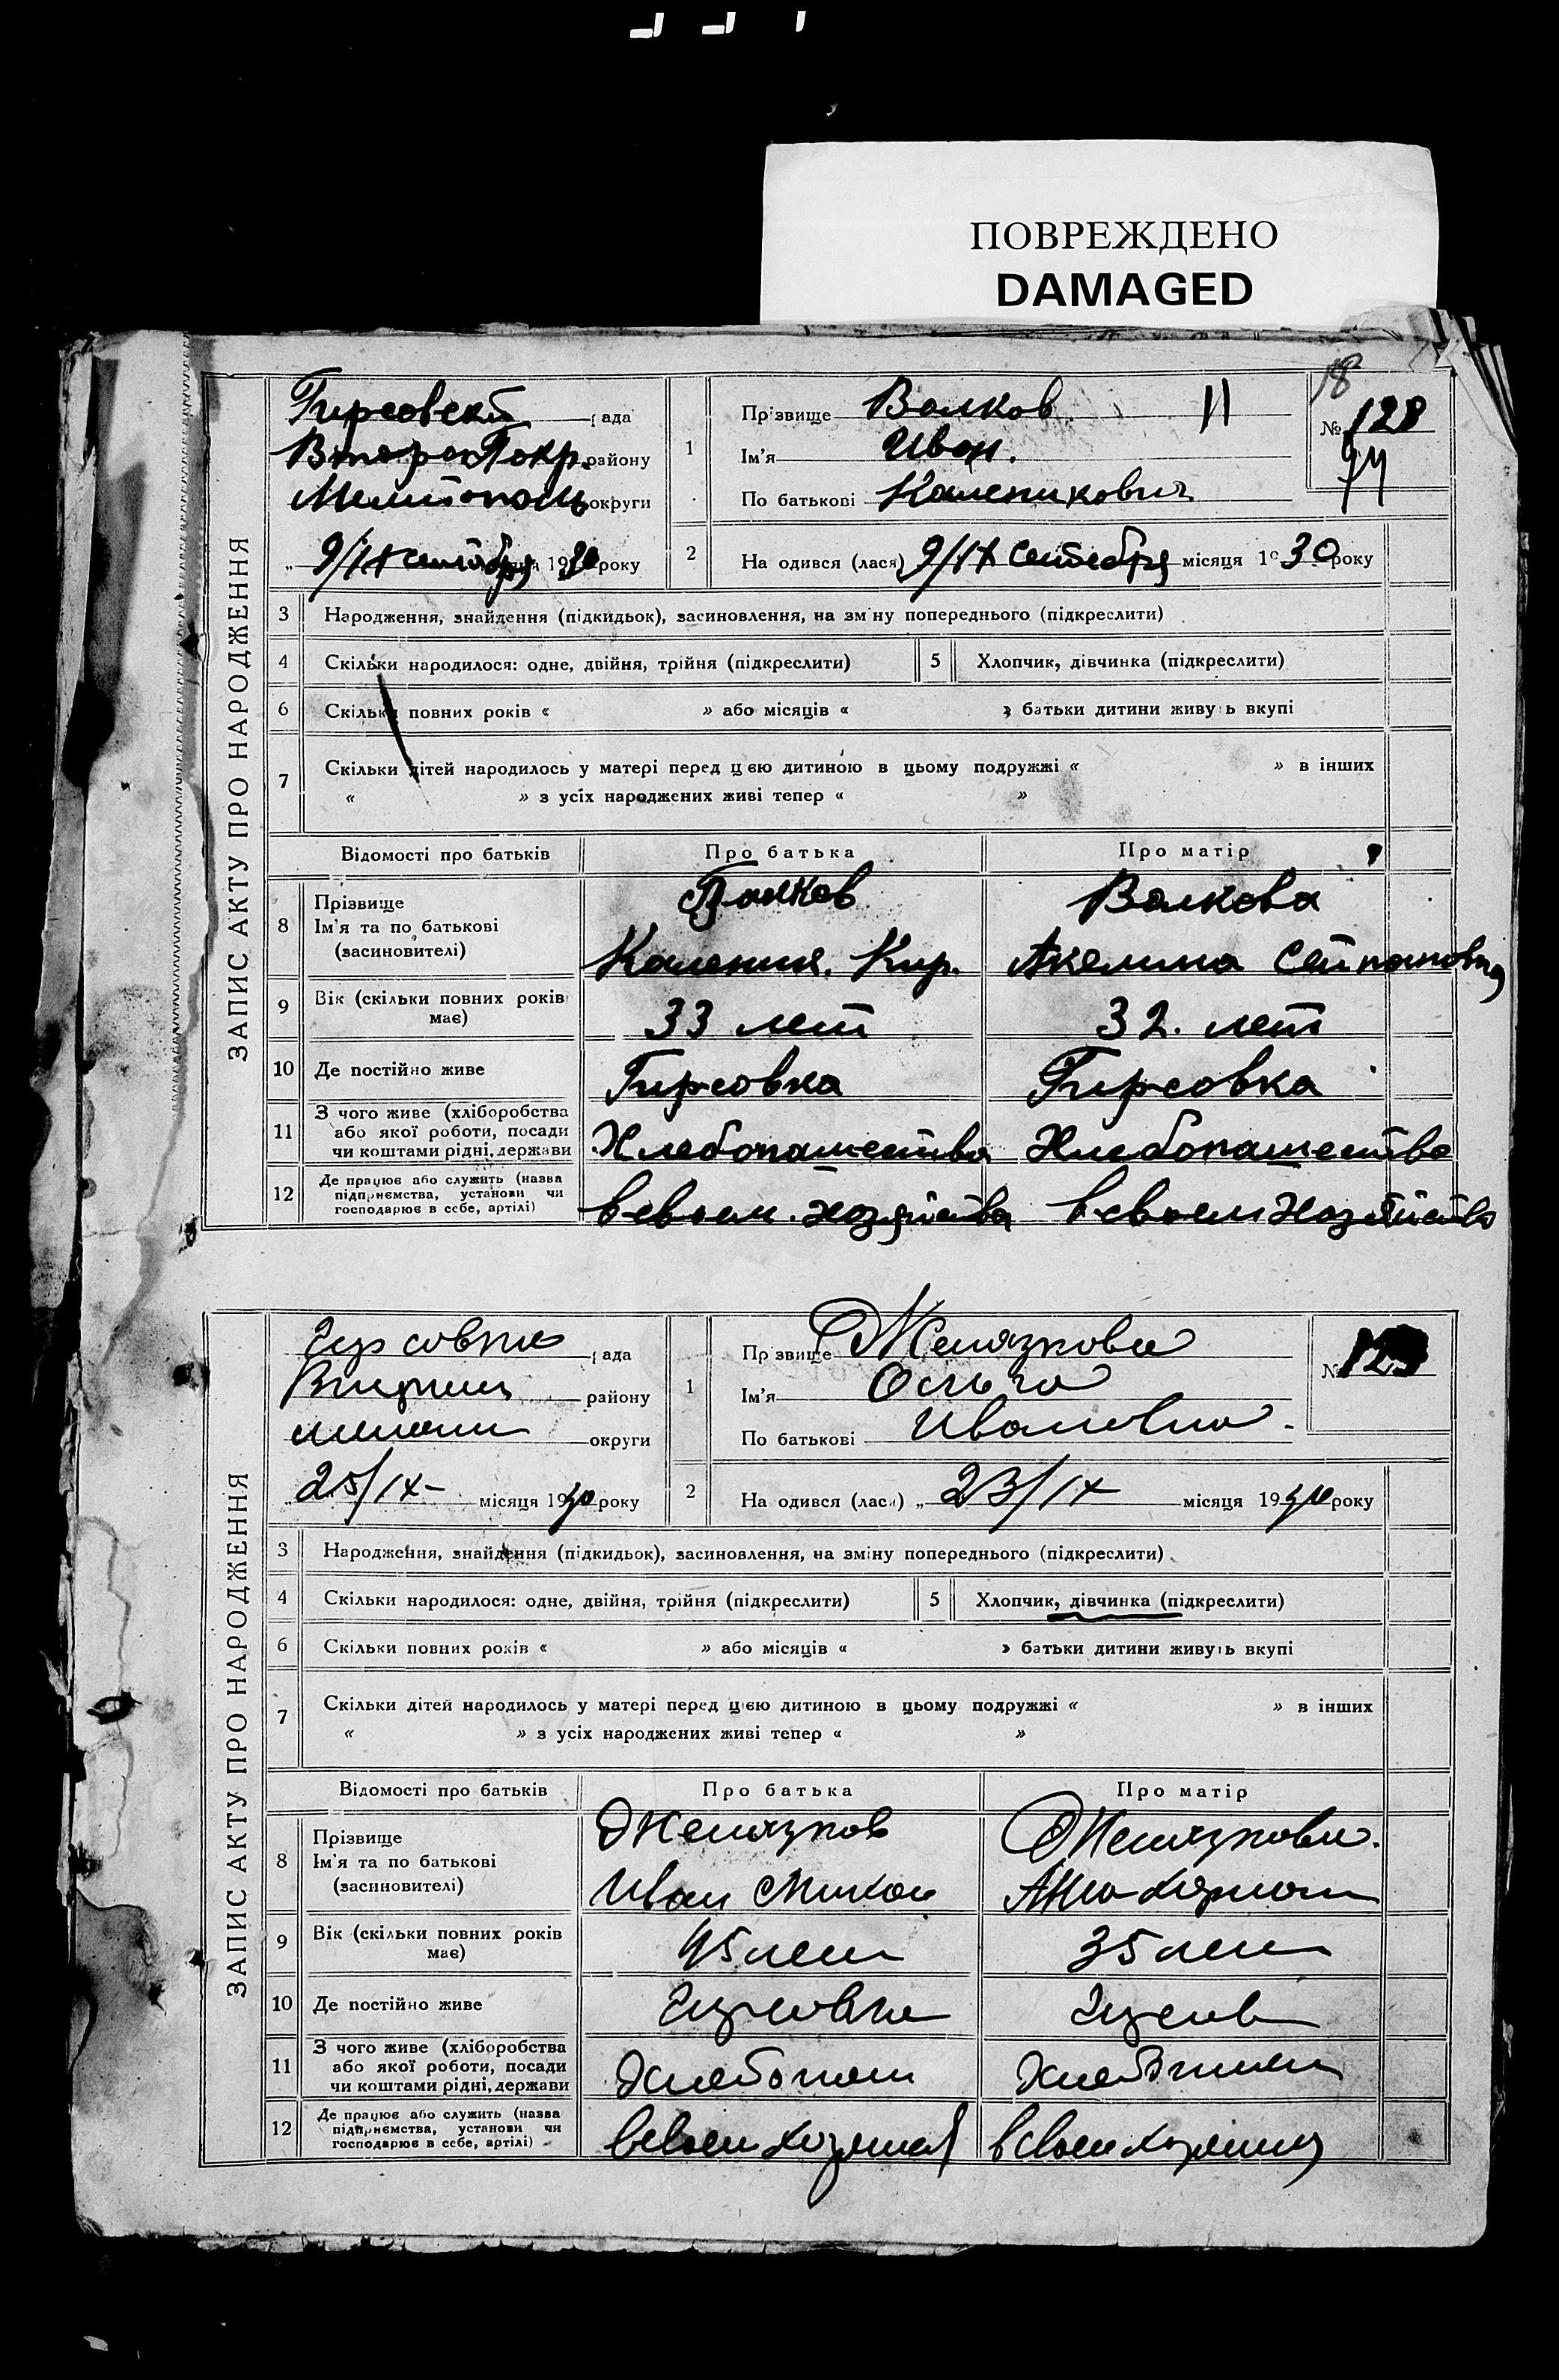 ПОВРЕЖДЕНО
DAMAGED
18
ЗАПИС АКТУ ПРО НАРОДЖЕННЯ
Гирсовски рада
ВтороПокр. району
Мелитополь округи
9/IX сентября 1930 року
1
Прізвище Волков II
Ім'я Иван.
По батькові Каленикович
№ 128
2
На одився (лася) 9/IX сентебря місяця 1930 року
3 Народження, знайдення (підкидьок), засиновлення, на зміну попереднього (підкреслити)
4 Скільки народилося: одне, двійня, трійня (підкреслити) 5 Хлопчик, дівчинка (підкреслити)
6 Скільки повних років « » або місяців « » батьки дитини живуть вкупі
7 Скільки дітей народилось у матері перед цією дитиною в цьому подружжі « » в інших
« » з усіх народжених живі тепер « »
Відомості про батьків Про батька Про матір
8 Прізвище Ім'я та по батькові (засиновителі)
Волков Волкова
Каленик. Кир. Акелина Сетпановна
9 Вік (скільки повних років має) 33 лет 32. лет
10 Де постійно живе Гирсовка Гирсовка
11 З чого живе (хліборобства або якої роботи, посади чи коштами рідні, держави Хлебопашества Хлебопашество
12 Де працює або служить (назва підприємства, установи чи господарює в себе, артілі) в своем. хозяйства в своем хозяйство
ЗАПИС АКТУ ПРО НАРОДЖЕННЯ
Гирсовка рада
району
округи
25/IX- місяця 1930 року
1
Прізвище Желязкова
Ім'я Ольга
По батькові Ивановна.
№ 129
2
На одився (лася) „ 23/IX місяця 1930 року
3 Народження, знайдення (підкидьок), засиновлення, на зміну попереднього (підкреслити)
4 Скільки народилося: одне, двійня, трійня (підкреслити) 5 Хлопчик, дівчинка (підкреслити)
6 Скільки повних років « » або місяців « » батьки дитини живуть вкупі
7 Скільки дітей народилось у матері перед цією дитиною в цьому подружжі « » в інших
« » з усіх народжених живі тепер « »
Відомості про батьків Про батька Про матір
8 Прізвище Ім'я та по батькові (засиновителі)
Желязков Желязкова.
Иван Микол Анна
9 Вік (скільки повних років має) 45 лет 35 лет
10 Де постійно живе Гирсовка Гирсов
11 З чого живе (хліборобства або якої роботи, посади чи коштами рідні, держави Хлебопаш Хлебопаш
12 Де працює або служить (назва підприємства, установи чи господарює в себе, артілі) в своем хозяйств в своем хозяйств